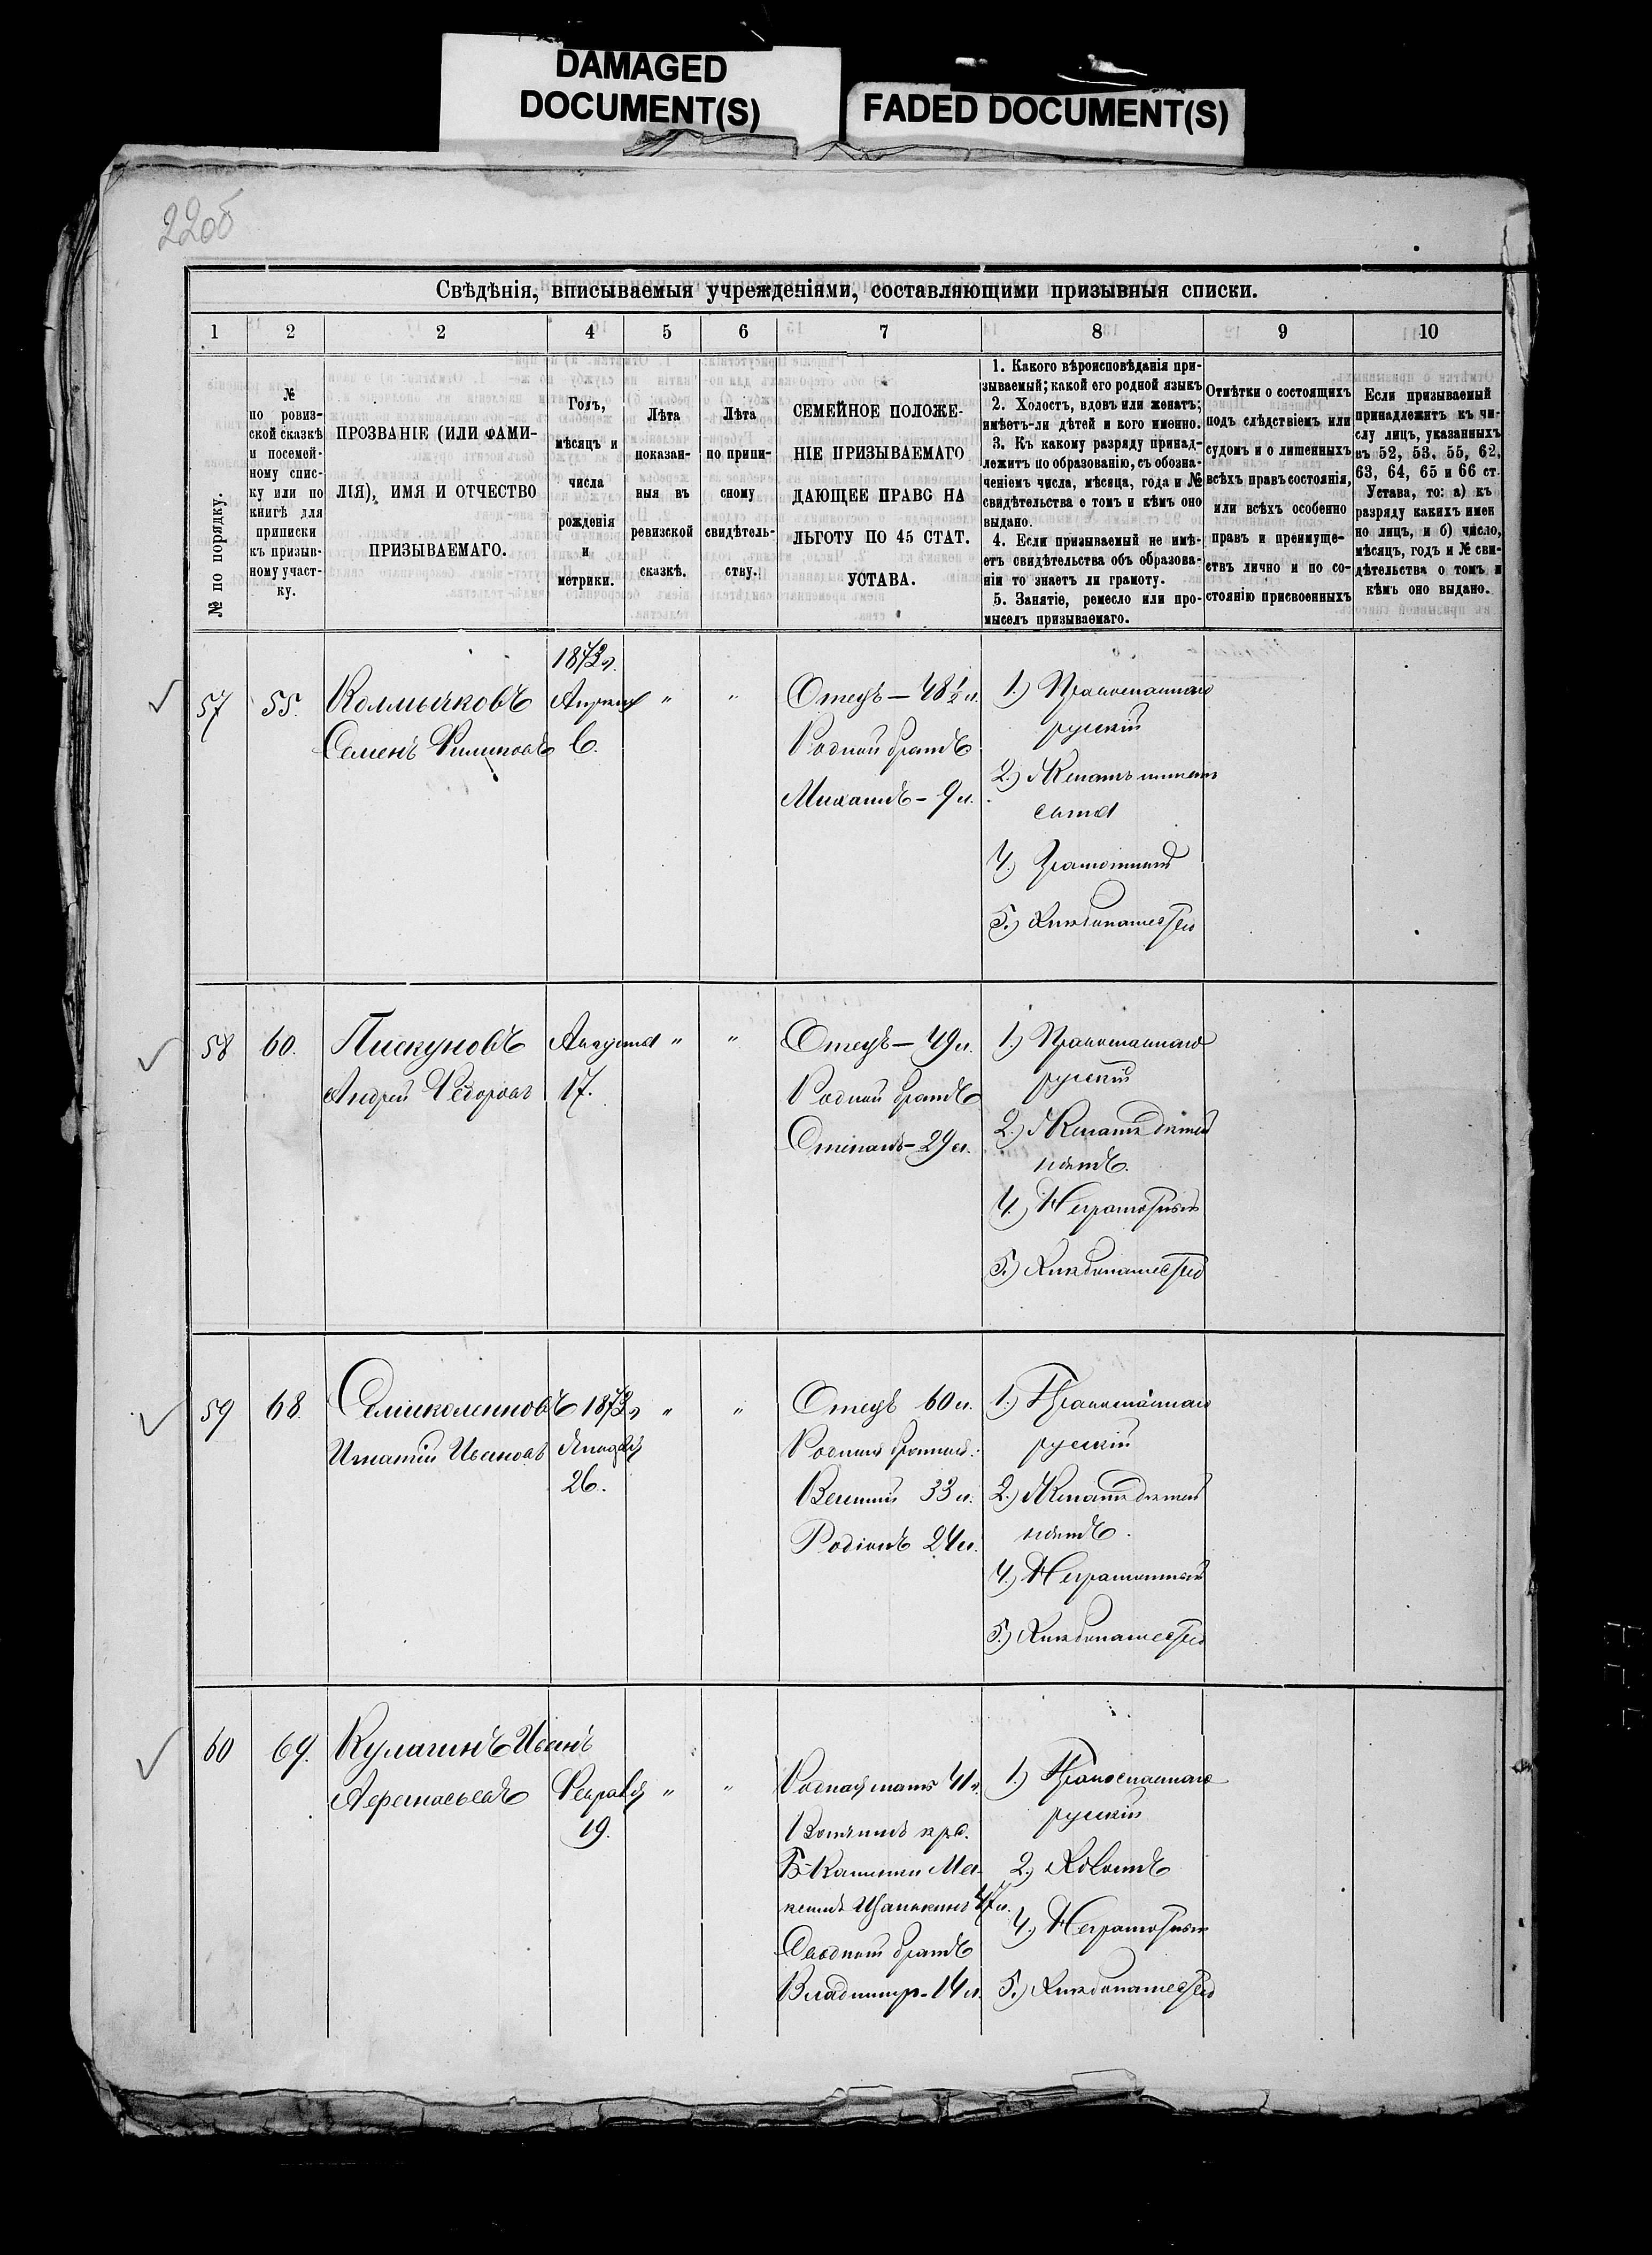 DAMAGED
DOCUMENT(S)
FADED DOCUMENT(S)
22об
Свѣдѣнія, вписываемыя учрежденіями, составляющими призывныя списки.
1 2 2 4 5 6 7 8 9 10
№ по порядку.
№
по ровиз-
ской сказкѣ
и посемей-
ному спис-
ку или по
книгѣ для
приписки
къ призыв-
ному участ-
ку.
ПРОЗВАНІЕ (ИЛИ ФАМИ-
ЛІЯ), ИМЯ И ОТЧЕСТВО
ПРИЗЫВАЕМАГО.
Годъ,
мѣсяцъ и
числа
рожденія
и
метрики.
Лѣта
показан-
ныя въ
ревизской
сказкѣ.
Лѣта
по припи-
сному
свидѣтель-
ству.
СЕМЕЙНОЕ ПОЛОЖЕ-
НІЕ ПРИЗЫВАЕМАГО
ДАЮЩЕЕ ПРАВО НА
ЛЬГОТУ ПО 45 СТАТ.
УСТАВА.
1. Какого вѣроисповѣданія при-
зываемый; какой его родной языкъ
2. Холостъ, вдовъ или женатъ;
имѣетъ-ли дѣтей и кого именно.
3. Къ какому разряду принад-
лежитъ по образованію, съ обозна-
ченіемъ числа, мѣсяца, года и №
свидѣтельства о томъ и кѣмъ оно
выдано.
4. Если призываемый не имѣ-
етъ свидѣтельства объ образова-
ніи то знаетъ ли грамоту.
5. Занятіе, ремесло или про-
мыселъ призываемаго.
Отмѣтки о состоящихъ
подъ слѣдствіемъ или
судомъ и о лишенныхъ
всѣхъ правъ состоянія,
или всѣхъ особенно
правъ и преимуще-
ствъ лично и по со-
стоянію присвоенныхъ
Если призываемый
принадлежитъ къ чи-
слу лицъ, указанныхъ
въ 52, 53, 55, 62,
63, 64, 65 и 66 ст.
Устава, то: а) къ
разряду какихъ имен
но лицъ, и б) число,
мѣсяцъ, годъ и № сви-
дѣтельства о томъ и
кѣмъ оно выдано.
57
55.
Колмычковъ
Семенъ Филиповъ
1873 г.
Апреля
6.
"
"
Отецъ — 48½ л.
Родной братъ
Михаилъ — 9 л.
1.) Православнаго
русскій
2.) Женатъ имѣетъ
сына
4.) Грамотный
5.) Хлѣбопашество
58
60.
Пискуновъ
Андрей Ѳедоровъ
Августа
17.
"
"
Отецъ — 49 л.
Родной братъ
Степанъ — 29 л.
1.) Православнаго
русскій
2.) Женатъ дѣтей
нѣтъ.
4.) Неграмотный
5.) Хлѣбопашество
59
68.
Семиколенновъ
Игнатій Ивановъ
1873 г
Января
26.
"
"
Отецъ 60 л.
Родные братья:
33 л.
Родіонъ 24 л.
1.) Православнаго
русскій
2.) Женатъ дѣтей
нѣтъ.
4.) Неграмотный
5.) Хлѣбопашество
60
69.
Кулагинъ Иванъ
Аѳанасьевъ
Февраля
19.
"
"
Родная мать 41 л.
Вотчимъ кр.
Б-Каменки Ма-
ксимъ 47 л.
Сводный братъ
Владимиръ - 14 л.
1.) Православнаго
русскій
2.) Холостъ
4.) Неграмотный
5.) Хлѣбопашество